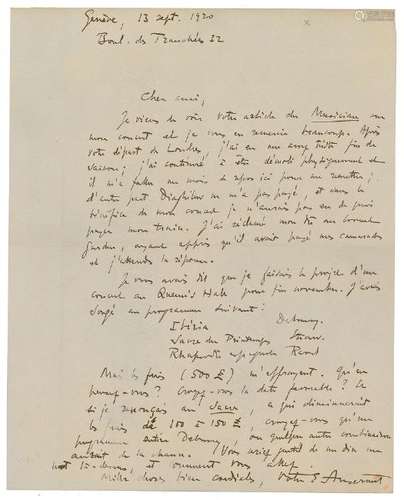 Genève, 13 sept. 1920
Boul. des Tranchées 22
Cher ami,
Je viens de voir votre article du Musician sur
mon concert et je vous en remercie beaucoup. Après
votre départ de Londres, j'ai eu une assez triste fin de
saison; j'ai continué à être démoli physiquement et
il m'a fallu un mois de repos ici pour me remettre;
d'autre part Diaghilew ne m'a pas payé, et sans le
bénéfice de mon concert je n'aurais pas eu de quoi
payer mon train. J'ai réclamé mon dû au Covent
Garden, ayant appris qu'il avait payé mes camarades
et j'attends la réponse.
Je vous avais dit que je faisais le projet d'un
concert au Queen's Hall pour fin novembre. J'avais
songé au programme suivant:
Ibéria Debussy
Sacre du Printemps Straw.
Rhapsodie espagnole Ravel
Mais les frais (500 £) m'effrayent. Qu'en
pensez-vous? Croyez-vous la date favorable? Et
si je renonçais au Sacre, ce qui diminuerait
les frais de 100 à 150 £, croyez-vous qu'un
programme entier Debussy, ou quelque autre combinaison
aurait de la chance. Vous seriez gentil de me dire un
mot là-dessus, et comment vous allez.
Mille choses bien cordiales, Votre E Ansermet